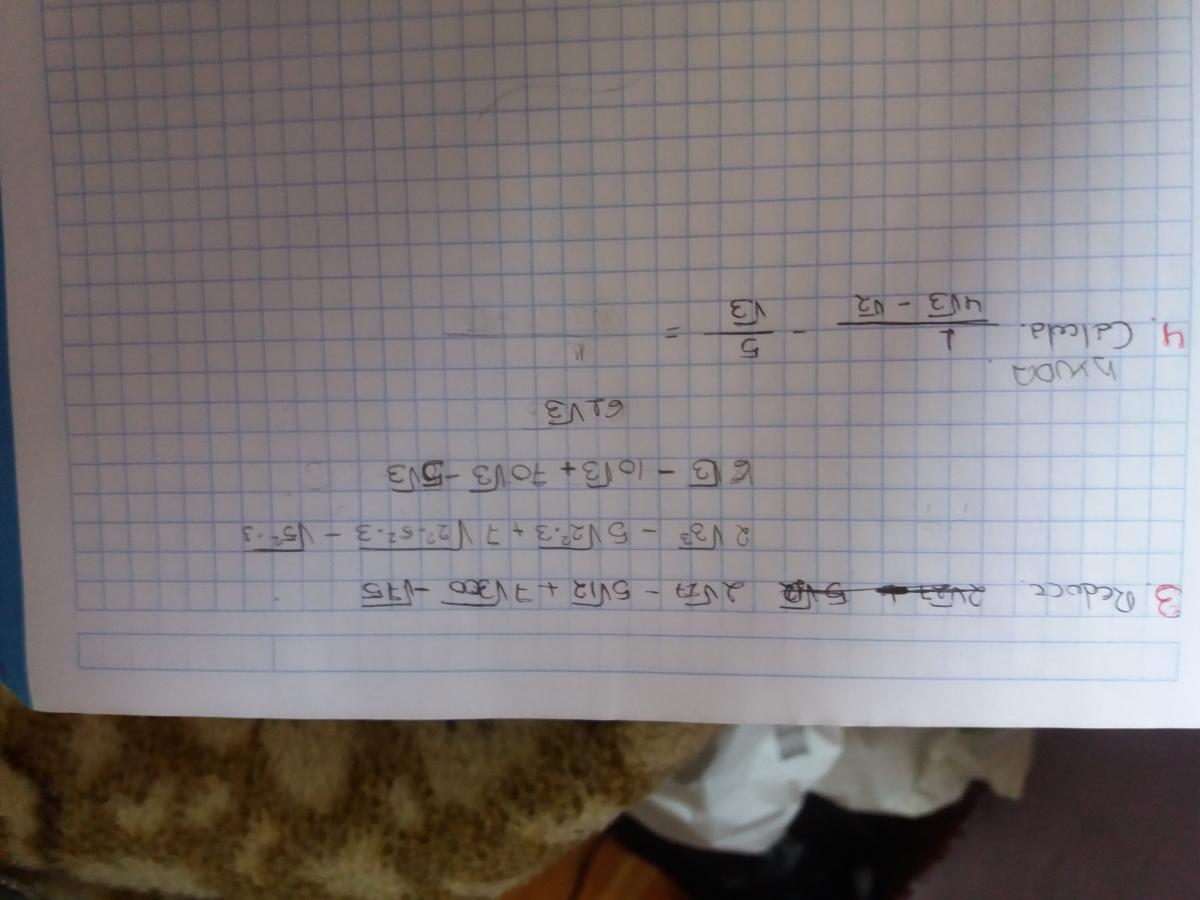 3. Reduce. 2√27 + 5√12 2√27 - 5√12 + 7√300 - √75
2√3³ - 5√2²·3 + 7√2²·5²·3 - √5²·3
6√3 - 10√3 + 70√3 - 5√3
61√3
4. Calcula. 1/(4√3 - √2) - 5/√3 =